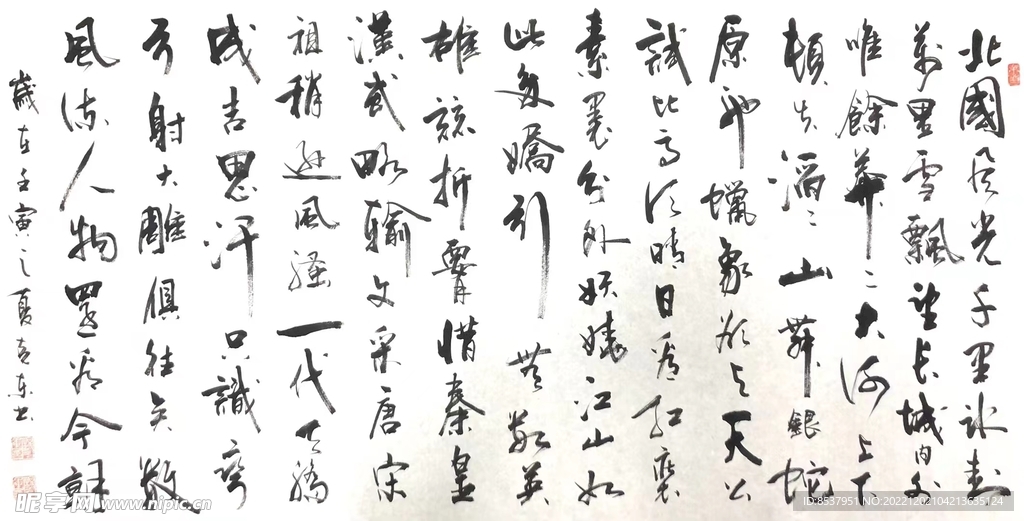 北國风光千里冰封
萬里雪飄望长城内外
唯餘莽〻大河上下
頓失滔〻山舞銀蛇
原驰蠟象欲与天公
試比高须晴日看红裹
素裹分外妖娆江山如
此多嬌引无数英
雄競折腰惜秦皇
漢武略輸文采唐宋
祖稍逊風騷一代天骄
成吉思汗只識彎
弓射大雕俱往矣数
風流人物還看今朝
歲在壬寅之夏 东书
昵享网 www.nipic.cn
ID:8537951 NO:20221202104213635124